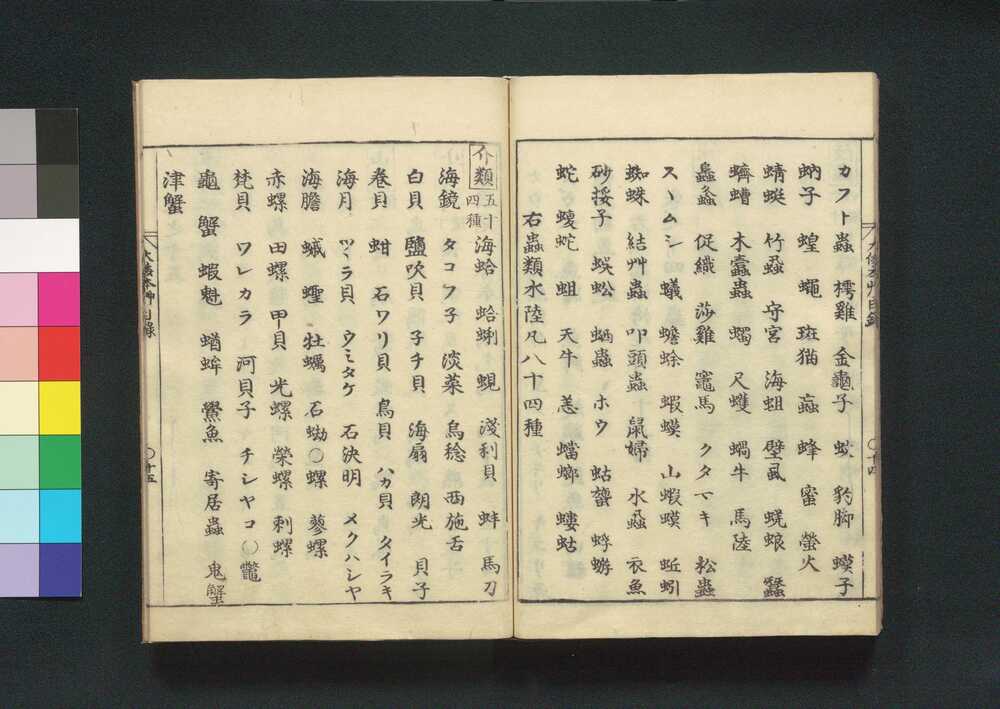 カフト蟲 樗雞 金龜子 蚊 豹脚 蟆子
蚋子 蝗 蠅 斑猫 蝱 蜂 蜜 螢火
蜻蜓 竹蝨 守宮 海蛆 壁虱 蜣蜋 蠶
蠐螬 木蠹蟲 蠋 尺蠖 蝸牛 馬陸
螽蟖 促織 莎雞 竈馬 クタマキ 松蟲
スヽムシ 蟻 蟾蜍 蝦蟆 山蝦蟆 蚯蚓
蜘蛛 結艸蟲 叩頭蟲 鼠婦 水蝨 衣魚
砂挼子 蜈蚣 蛔蟲 ヽホウ 蛄蟴 蜉蝣
蛇 蝮蛇 蛆 天牛 恙 蟷螂 螻蛄
右蟲類水陸凡八十四種
大倭本艸目録
〇十四
介類 五十四種 海蛤 蛤蜊 蜆 淺利貝 蚌 馬刀
海鏡 タコフ子 淡菜 烏稔 西施舌
白貝 鹽吹貝 子チ貝 海扇 朗光 貝子
卷貝 蚶 石ワリ貝 鳥貝 ハカ貝 タイラキ
海月 ツヾラ貝 ウミタケ 石決明 メクハシヤ
海膽 蛾 蟶 牡蠣 石蚴〇螺 蓼螺
赤螺 田螺 甲貝 光螺 榮螺 刺螺
梵貝 ワレカラ 河貝子 チシヤコ〇鼈
龜 蟹 蝦魁 蝤蛑 鱟魚 寄居蟲 鬼蟹
津蟹
大倭本艸目録
〇十五